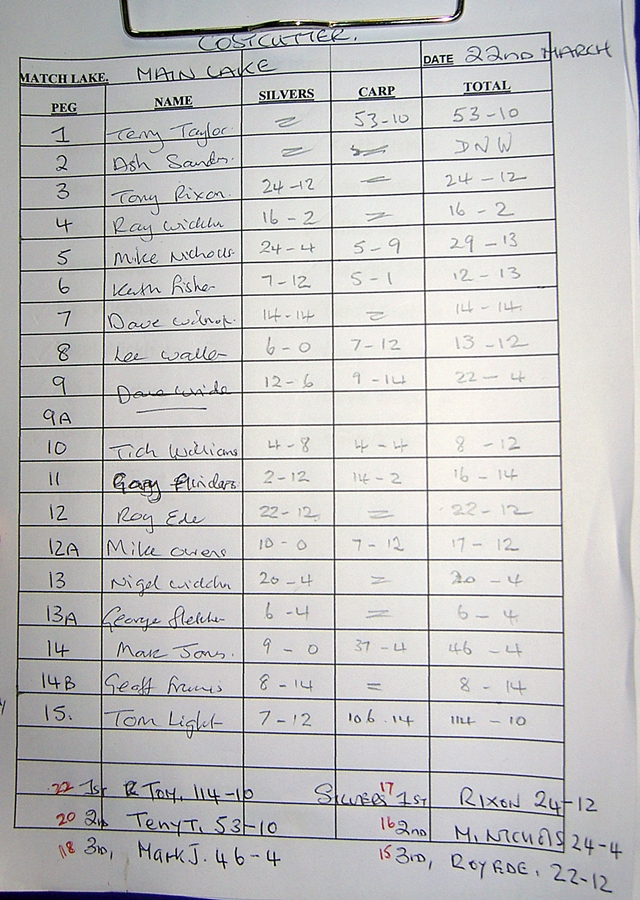 COSTCUTTER.
MATCH LAKE. MAIN LAKE DATE 22ND MARCH
PEG NAME SILVERS CARP TOTAL
1 Terry Taylor = 53-10 53-10
2 Ash Sands. = DNW
3 Tony Rixon. 24-12 = 24-12
4 Ray 16-2 = 16-2
5 Mike Nichols 24-4 5-9 29-13
6 Keith Fisher 7-12 5-1 12-13
7 Dave 14-14 = 14-14
8 Lee Waller 6-0 7-12 13-12
9 Dave Wride 12-6 9-14 22-4
9A
10 Tich Williams 4-8 4-4 8-12
11 Gary Flinders 2-12 14-2 16-14
12 Roy Ede 22-12 = 22-12
12A Mike Owens 10-0 7-12 17-12
13 Nigel 20-4 = 20-4
13A George Fletcher 6-4 = 6-4
14 Mark Jones. 9-0 37-4 46-4
14B Geoff Francis 8-14 = 8-14
15. Tom Light 7-12 106.14 114-10
22 1st Tom, 114-10 SILVERS 17 1ST RIXON 24-12
20 2nd Terry T. 53-10 16 2nd M. NICHOLS 24-4
18 3rd, Mark J. 46-4 15 3RD, ROY EDE. 22-12